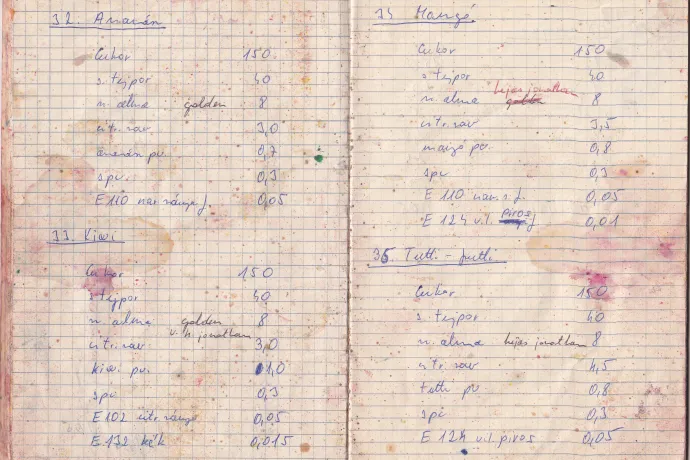 32. Ananán
Cukor 150
s. tejpor 40
n. alma golden 8
citr. sav 3,0
ananán pv. 0,7
spv. 0,3
E 110 nar. sárga f. 0,05
33. Kiwi
Cukor 150
s. tejpor 40
n. alma golden 8
v. h. jonathan
citr. sav 3,0
kiwi pv. 1,0
spv 0,3
E 102 citr. sárga 0,05
E 132 kék 0,015
Mangó
Cukor 150
s. tejpor 40
héjas jonathan
n. alma 8
citr. sav 3,5
mangó pv. 0,8
spv 0,3
E 110 nar. s. f. 0,05
E 124 v.l. piros f 0,01
35. Tutti - frutti
Cukor 150
s. tejpor 40
n. alma héjas jonathan 8
citr. sav 4,5
tutti pv 0,8
spv 0,3
E 124 v.l. piros 0,05